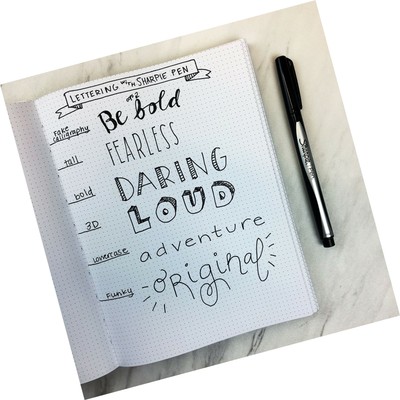 LETTERING WITH SHARPIE PEN
fake calligraphy
Be bold
tall
FEARLESS
bold
DARING
3D
LOUD
lowercase
adventure
FUNKY
ORiginal
Sharpie